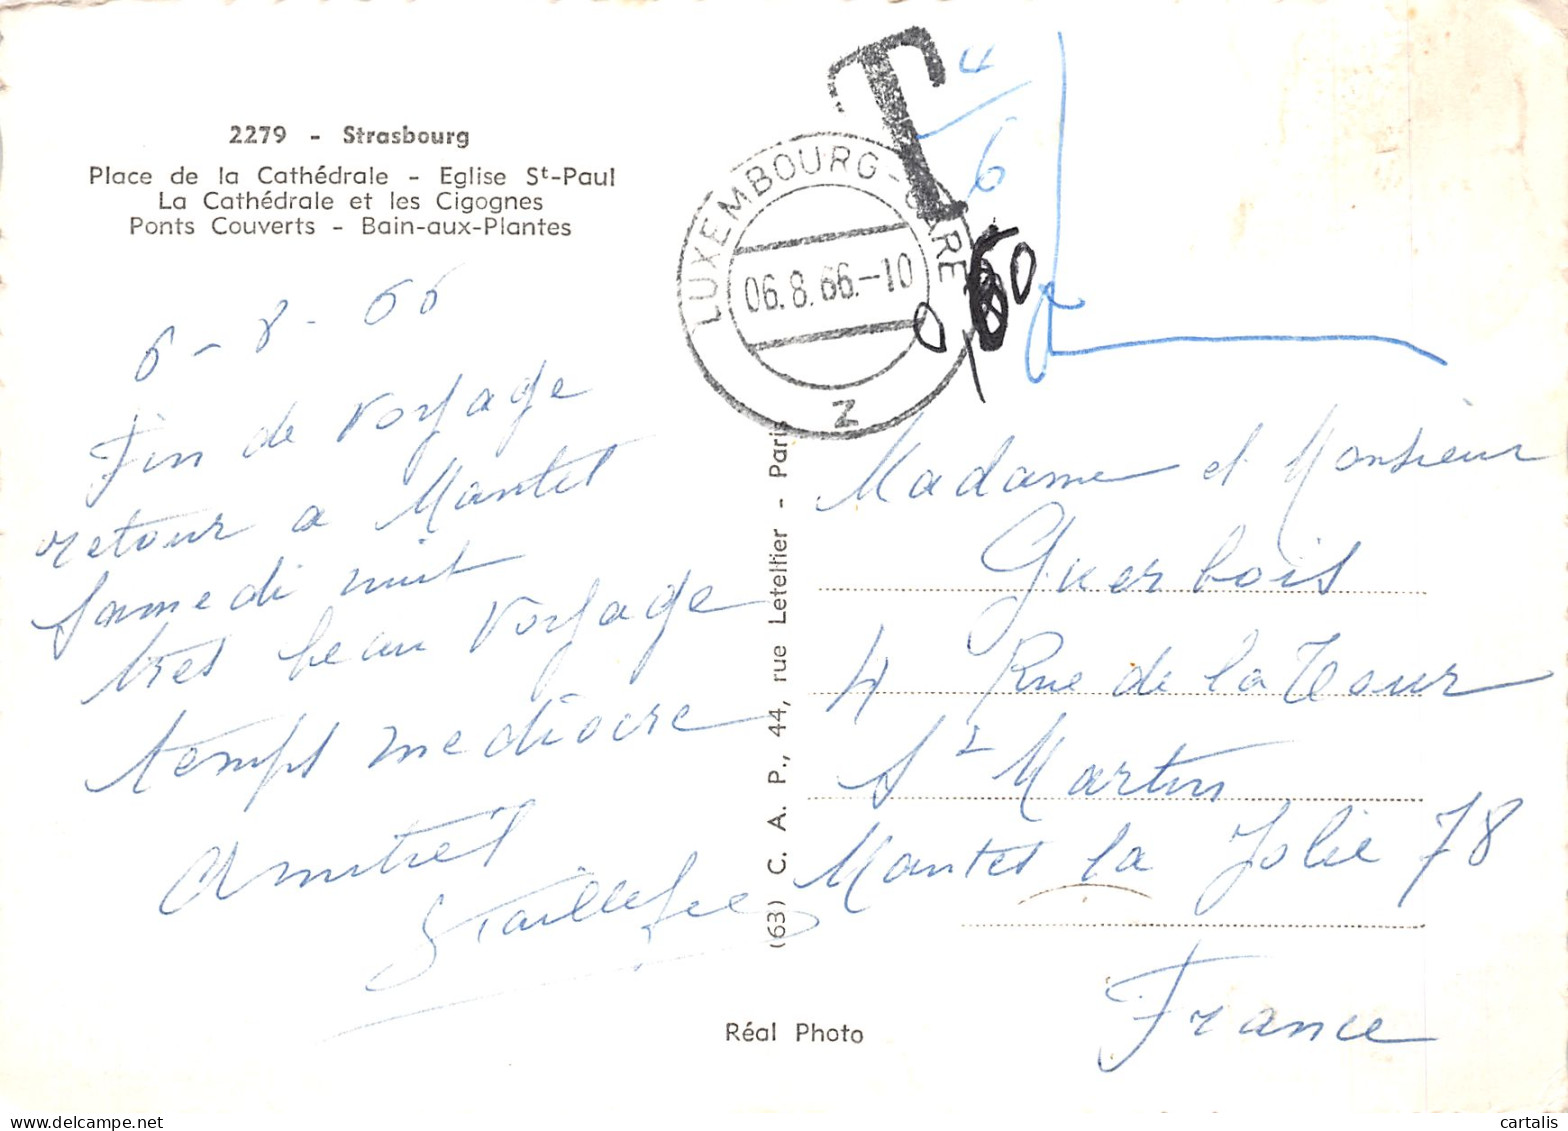 2279 - Strasbourg
Place de la Cathédrale - Eglise St-Paul
La Cathédrale et les Cigognes
Ponts Couverts - Bain-aux-Plantes
6-8-66
Fin de voyage
retour a Mantes
samedi nuit
tres beau voyage
temps mediocre
Amities
T
4/6
LUXEMBOURG-GARE
06.8.66.-10
Z
(63) C. A. P., 44, rue Letellier - Paris
Réal Photo
Madame et Monsieur
Guerbois
4 Rue de la Tour
St Martin
Mantes la Jolie 78
France
cartalis